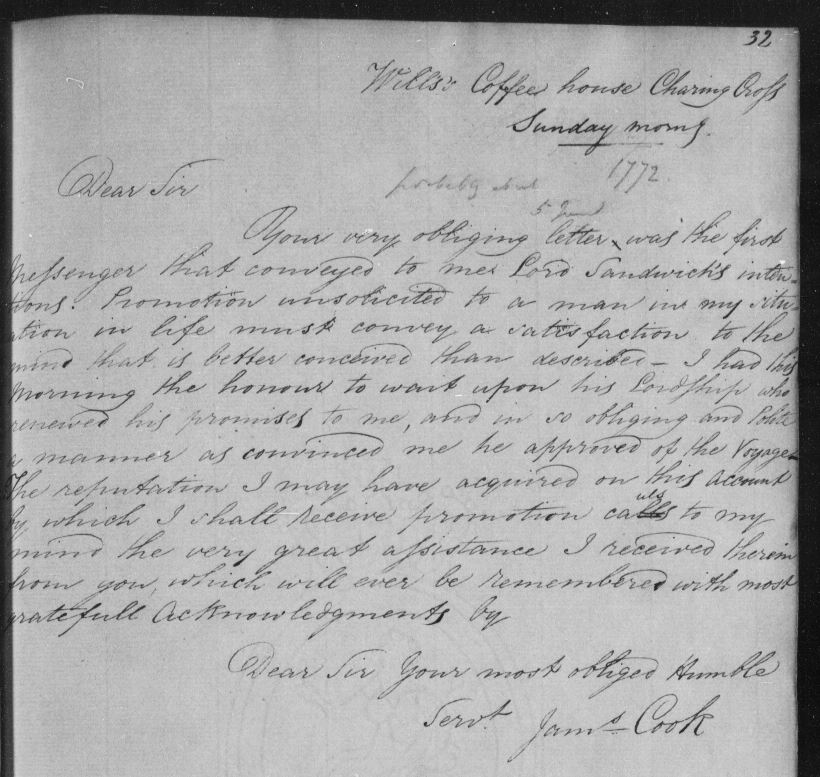 32
Will's Coffee house Charing Cross
Sunday morng.
1772.
Dear Sir
probably about
5 June
Your very obliging letter, was the first
Messenger that conveyed to me Lord Sandwich's inten-
tions. Promotion unsolicited to a man in my situ-
ation in life must convey a satisfaction to the
mind that is better conceived than described – I had this
Morning the honour to wait upon his Lordship who
renewed his promises to me, and in so obliging and Polite
a manner as convinced me he approved of the Voyage.
The reputation I may have acquired on this Account
by which I shall receive promotion calls to my
mind the very great assistance I received therein
from you, which will ever be remembered with most
gratefull Acknowledgments by
Dear Sir Your most obliged Humble
Servt. Jams Cook